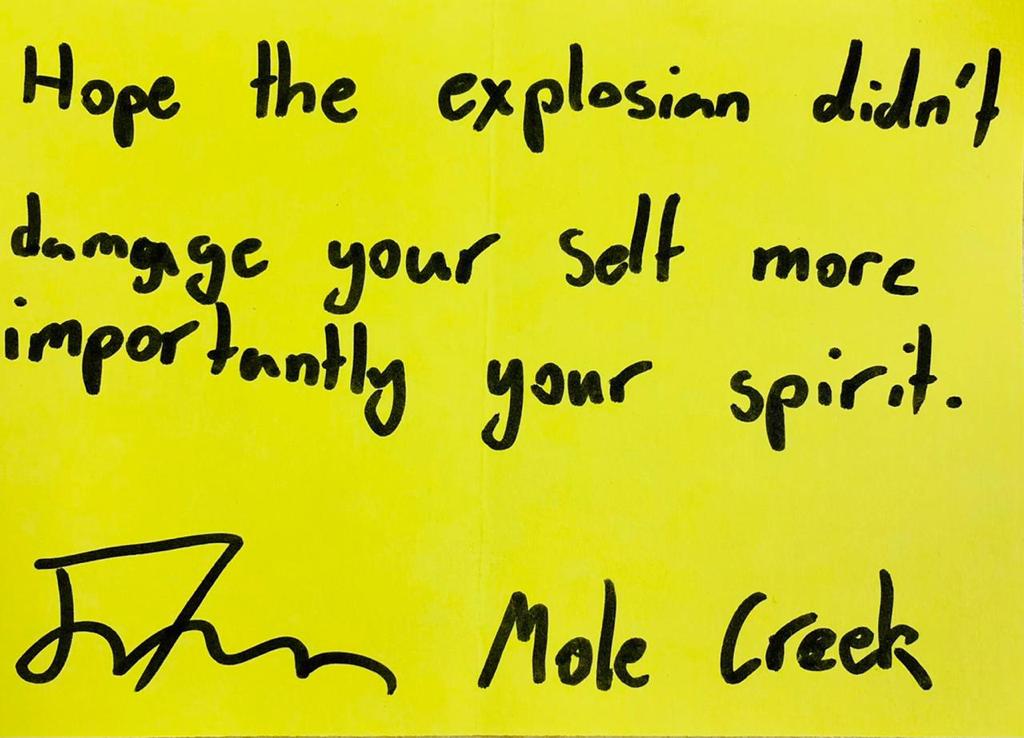 Hope the explosian didn't
damgage your self more
importantly your spirit.
Mole Creek